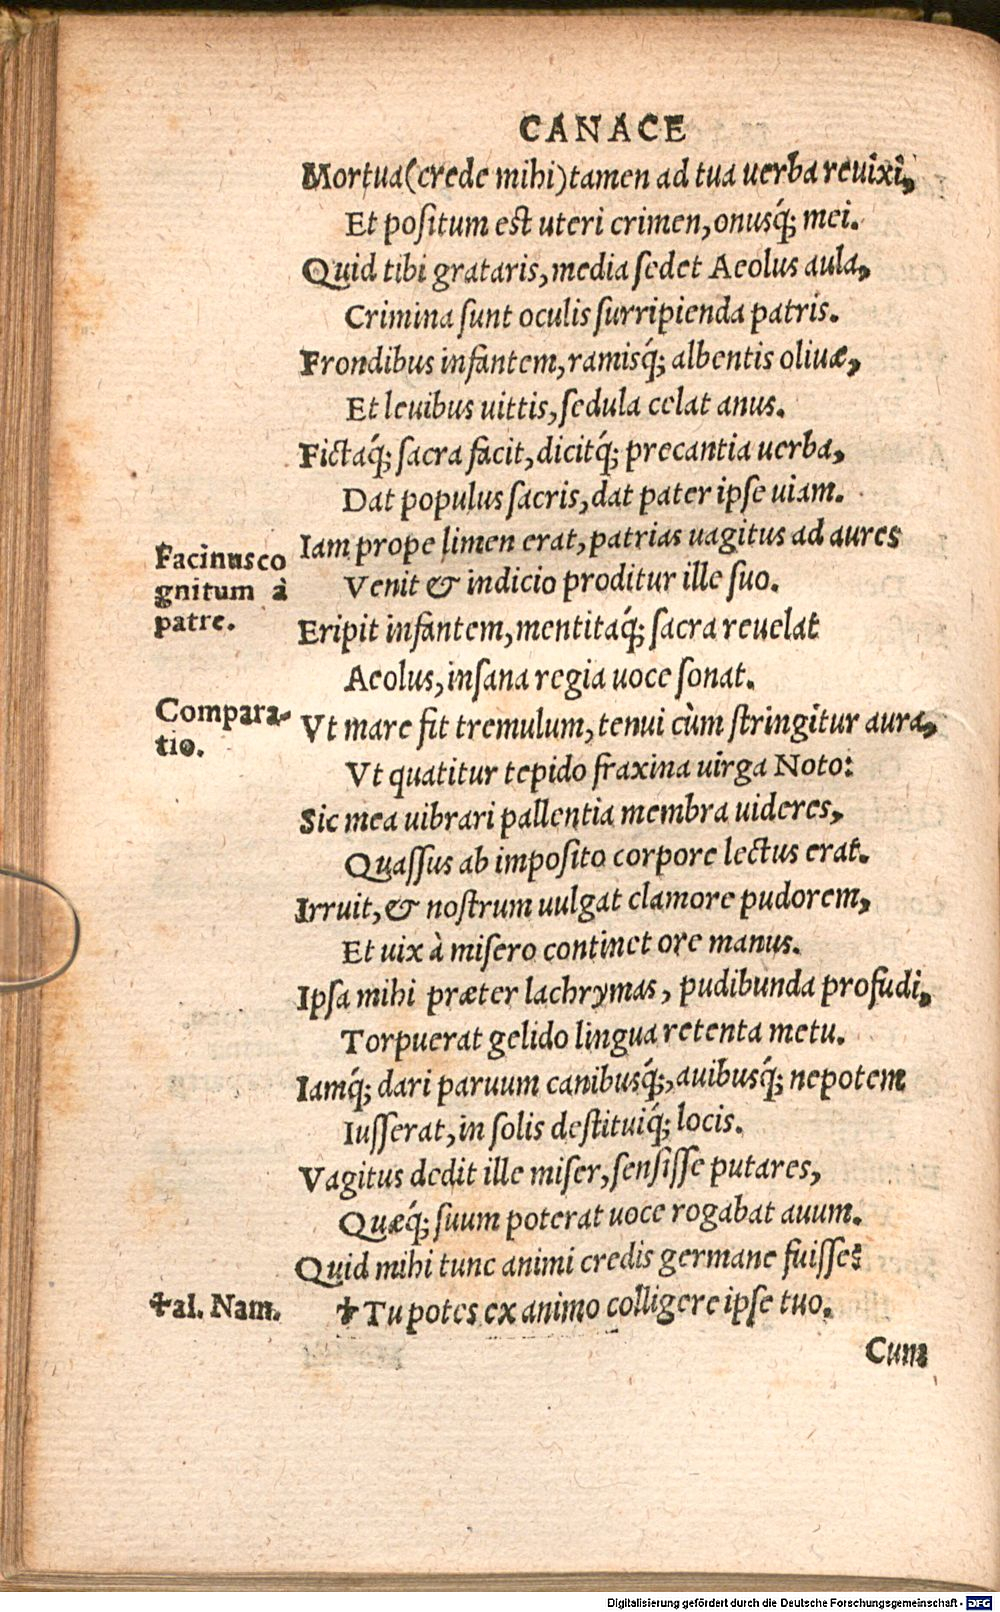 CANACE
Mortua(crede mihi)tamen ad tua uerba reuixi,
Et positum est uteri crimen, onusq́; mei.
Quid tibi grataris, media sedet Aeolus aula,
Crimina sunt oculis surripienda patris.
Frondibus infantem, ramisq́; albentis oliuæ,
Et leuibus uittis, sedula celat anus.
Fictaq́; sacra facit, dicitq́; precantia uerba,
Dat populus sacris, dat pater ipse uiam.
Iam prope limen erat, patrias uagitus ad aures
Facinus co
gnitum à
patre.
Venit & indicio proditur ille suo.
Eripit infantem, mentitaq́; sacra reuelat
Aeolus, insana regia uoce sonat.
Compara-
tio.
Vt mare fit tremulum, tenui cùm stringitur aura,
Vt quatitur tepido fraxina uirga Noto:
Sic mea uibrari pallentia membra uideres,
Quassus ab imposito corpore lectus erat.
Irruit, & nostrum uulgat clamore pudorem,
Et uix à misero continet ore manus.
Ipsa mihi præter lachrymas, pudibunda profudi,
Torpuerat gelido lingua retenta metu.
Iamq́; dari paruum canibusq́;, auibusq́; nepotem
Iusserat, in solis destituiq́; locis.
Vagitus dedit ille miser, sensisse putares,
Quæq́; suum poterat uoce rogabat auum.
Quid mihi tunc animi credis germane fuisse?
✝al. Nam.
✝Tu potes ex animo colligere ipse tuo.
Cum
Digitalisierung gefördert durch die Deutsche Forschungsgemeinschaft - DFG